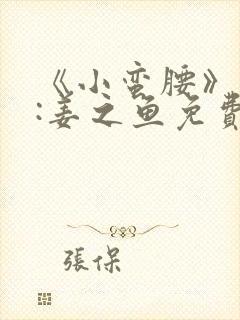 《小蛮腰》
:姜之鱼免費
張保